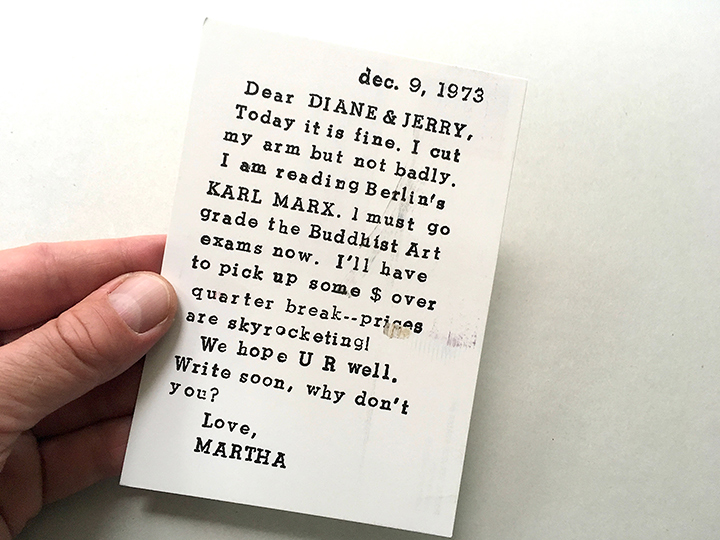 dec. 9, 1973
Dear DIANE & JERRY,
Today it is fine. I cut
my arm but not badly.
I am reading Berlin's
KARL MARX. I must go
grade the Buddhist Art
exams now. I'll have
to pick up some $ over
quarter break--prices
are skyrocketing!
We hope U R well.
Write soon, why don't
you?
Love,
MARTHA